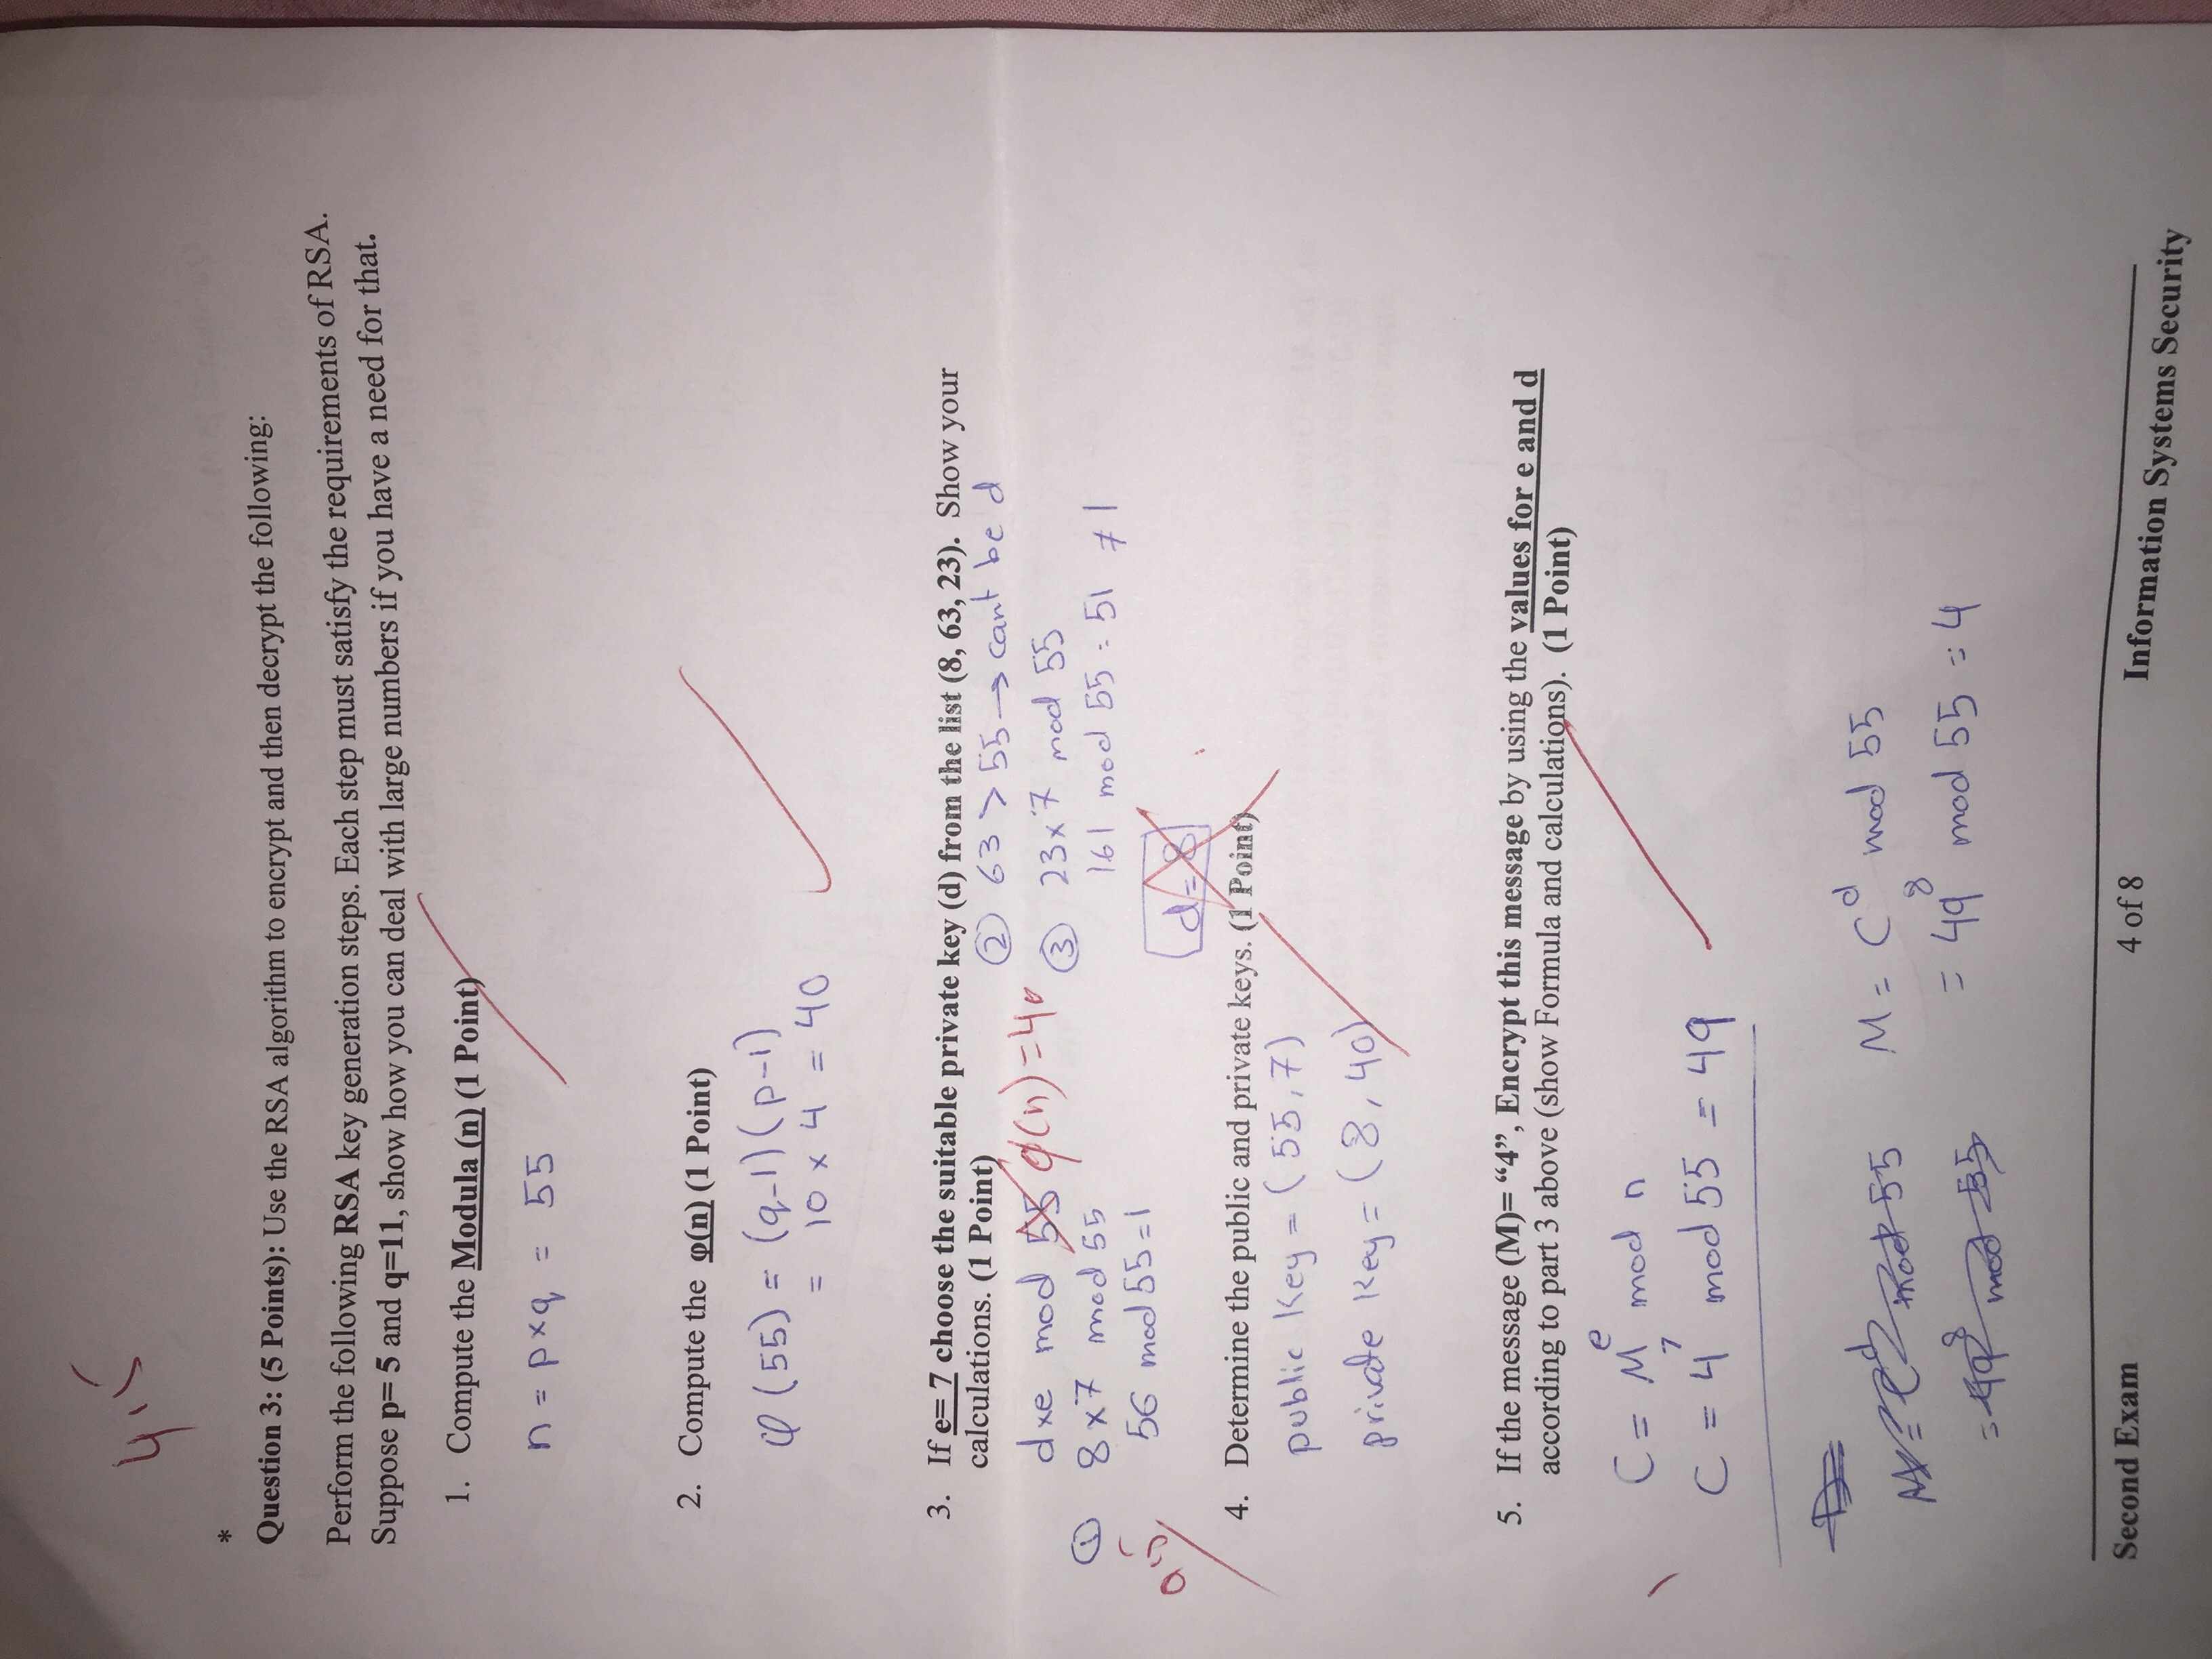 4.5
*
Question 3: (5 Points): Use the RSA algorithm to encrypt and then decrypt the following:
Perform the following RSA key generation steps. Each step must satisfy the requirements of RSA.
Suppose p= 5 and q=11, show how you can deal with large numbers if you have a need for that.
1. Compute the Modula (n) (1 Point)
n = p×q = 55
2. Compute the φ(n) (1 Point)
φ (55) = (q-1)(p-1)
= 10 × 4 = 40
3. If e= 7 choose the suitable private key (d) from the list (8, 63, 23). Show your
calculations. (1 Point)
d×e mod 55 φ(n)=40
① 8×7 mod 55
56 mod 55=1
② 63 > 55 → cant be d
③ 23×7 mod 55
161 mod 55 = 51 ≠ 1
d=8
0.5
4. Determine the public and private keys. (1 Point)
public Key = (55,7)
private Key = (8, 40)
5. If the message (M)= “4”, Encrypt this message by using the values for e and d
according to part 3 above (show Formula and calculations). (1 Point)
C = M^e mod n
C = 4^7 mod 55 = 49
M = C^d mod 55
= 49^8 mod 55
M = C^d mod 55
= 49^8 mod 55 = 4
Second Exam 4 of 8 Information Systems Security